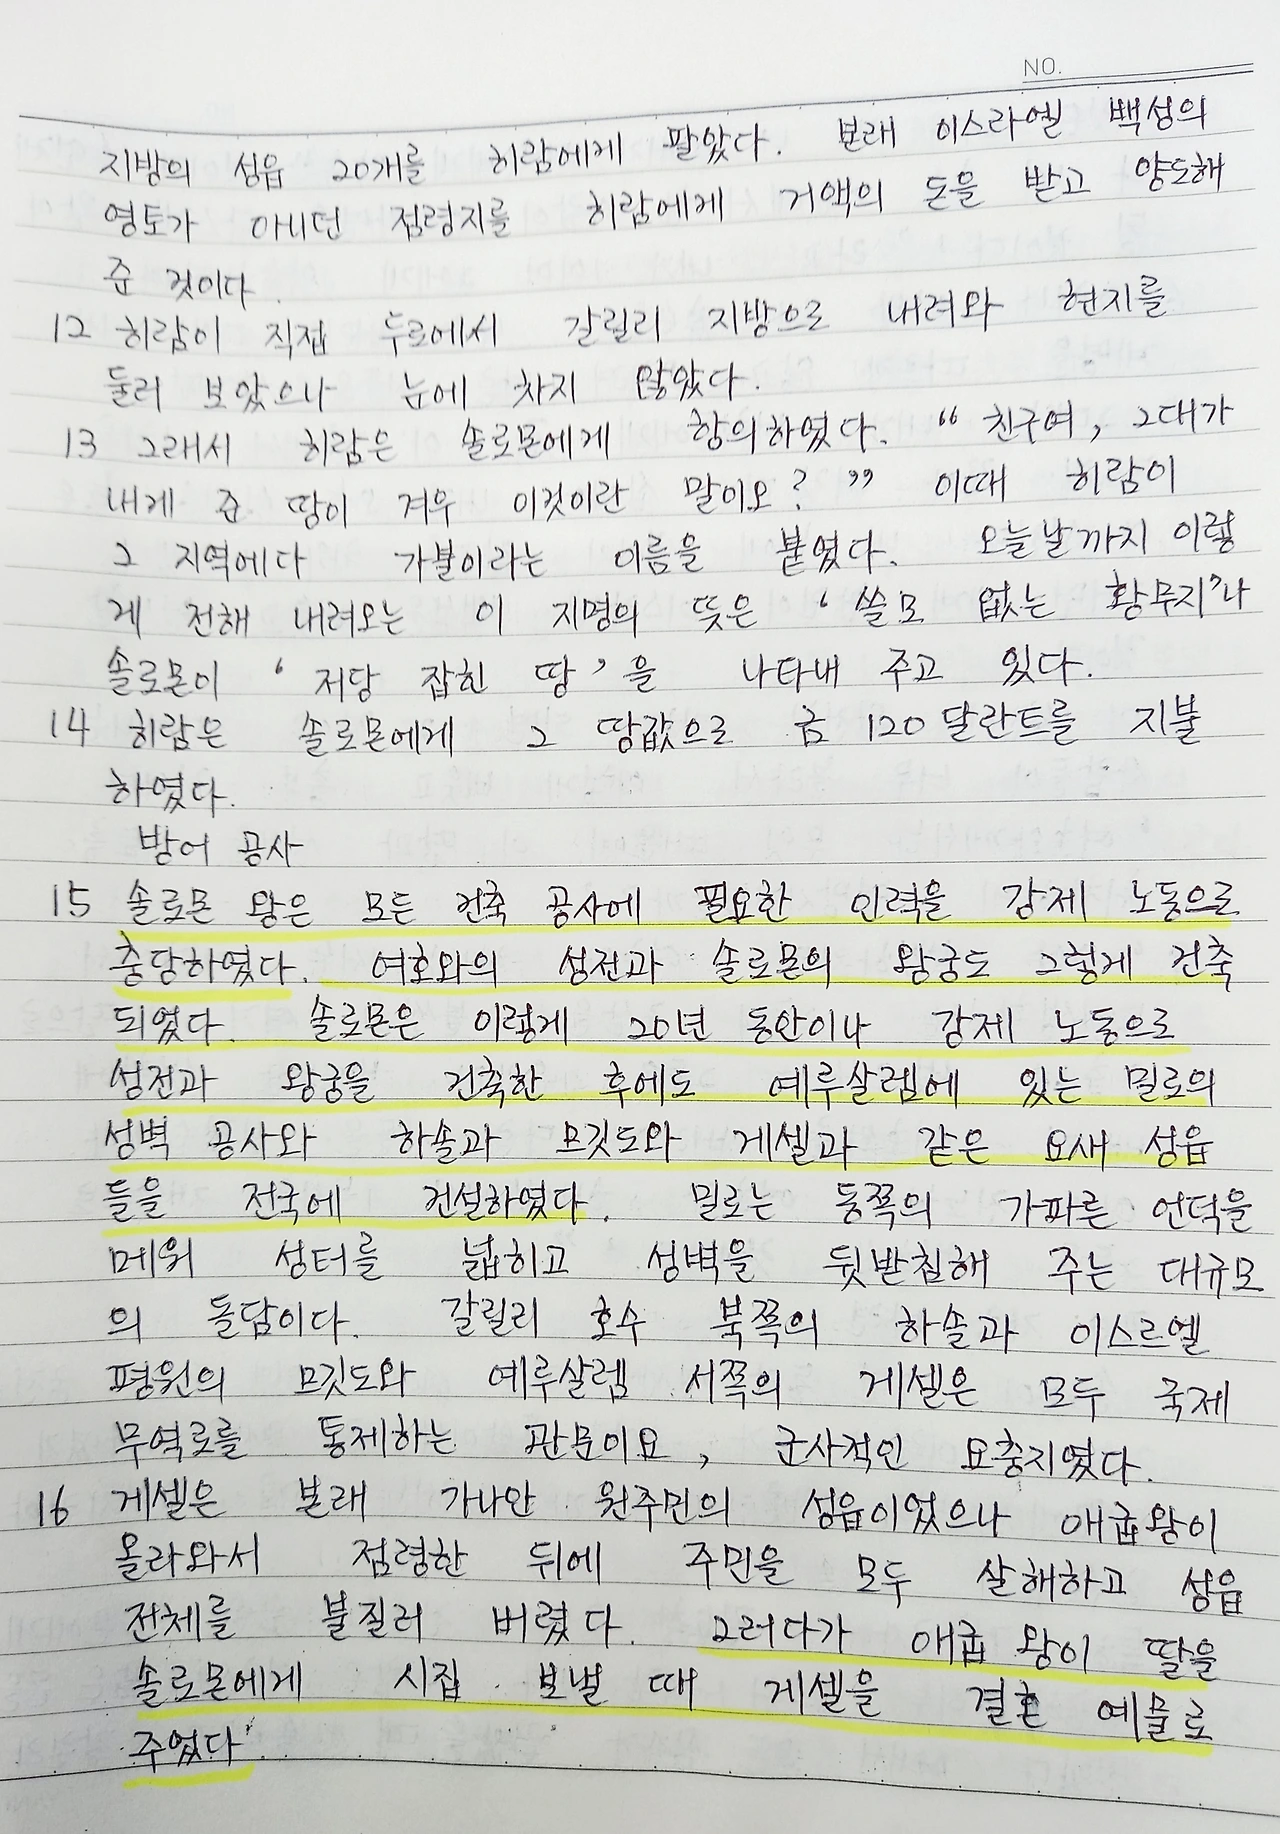 NO.
지방의 성읍 20개를 히람에게 팔았다. 본래 이스라엘 백성의
영토가 아니던 점령지를 히람에게 거액의 돈을 받고 양도해
준 것이다.
12 히람이 직접 두로에서 갈릴리 지방으로 내려와 현지를
둘러 보았으나 눈에 차지 않았다.
13 그래서 히람은 솔로몬에게 항의하였다. “ 친구여, 그대가
내게 준 땅이 겨우 이것이란 말이오? ” 이때 히람이
그 지역에다 가불이라는 이름을 붙였다. 오늘날까지 이렇
게 전해 내려오는 이 지명의 뜻은 ‘ 쓸모 없는 황무지’나
솔로몬이 ‘ 저당 잡힌 땅 ’ 을 나타내 주고 있다.
14 히람은 솔로몬에게 그 땅값으로 금 120 달란트를 지불
하였다.
방어 공사
15 솔로몬 왕은 모든 건축 공사에 필요한 인력을 강제 노동으로
충당하였다. 여호와의 성전과 솔로몬의 왕궁도 그렇게 건축
되었다. 솔로몬은 이렇게 20년 동안이나 강제 노동으로
성전과 왕궁을 건축한 후에도 예루살렘에 있는 밀로의
성벽 공사와 하솔과 므깃도와 게셀과 같은 요새 성읍
들을 전국에 건설하였다. 밀로는 동쪽의 가파른 언덕을
메워 성터를 넓히고 성벽을 뒷받침해 주는 대규모
의 돌담이다. 갈릴리 호수 북쪽의 하솔과 이스르엘
평원의 므깃도와 예루살렘 서쪽의 게셀은 모두 국제
무역로를 통제하는 관문이요, 군사적인 요충지였다.
16 게셀은 본래 가나안 원주민의 성읍이었으나 애굽왕이
올라와서 점령한 뒤에 주민을 모두 살해하고 성읍
전체를 불질러 버렸다. 그러다가 애굽 왕이 딸을
솔로몬에게 시집 보낼 때 게셀을 결혼 예물로
주었다.